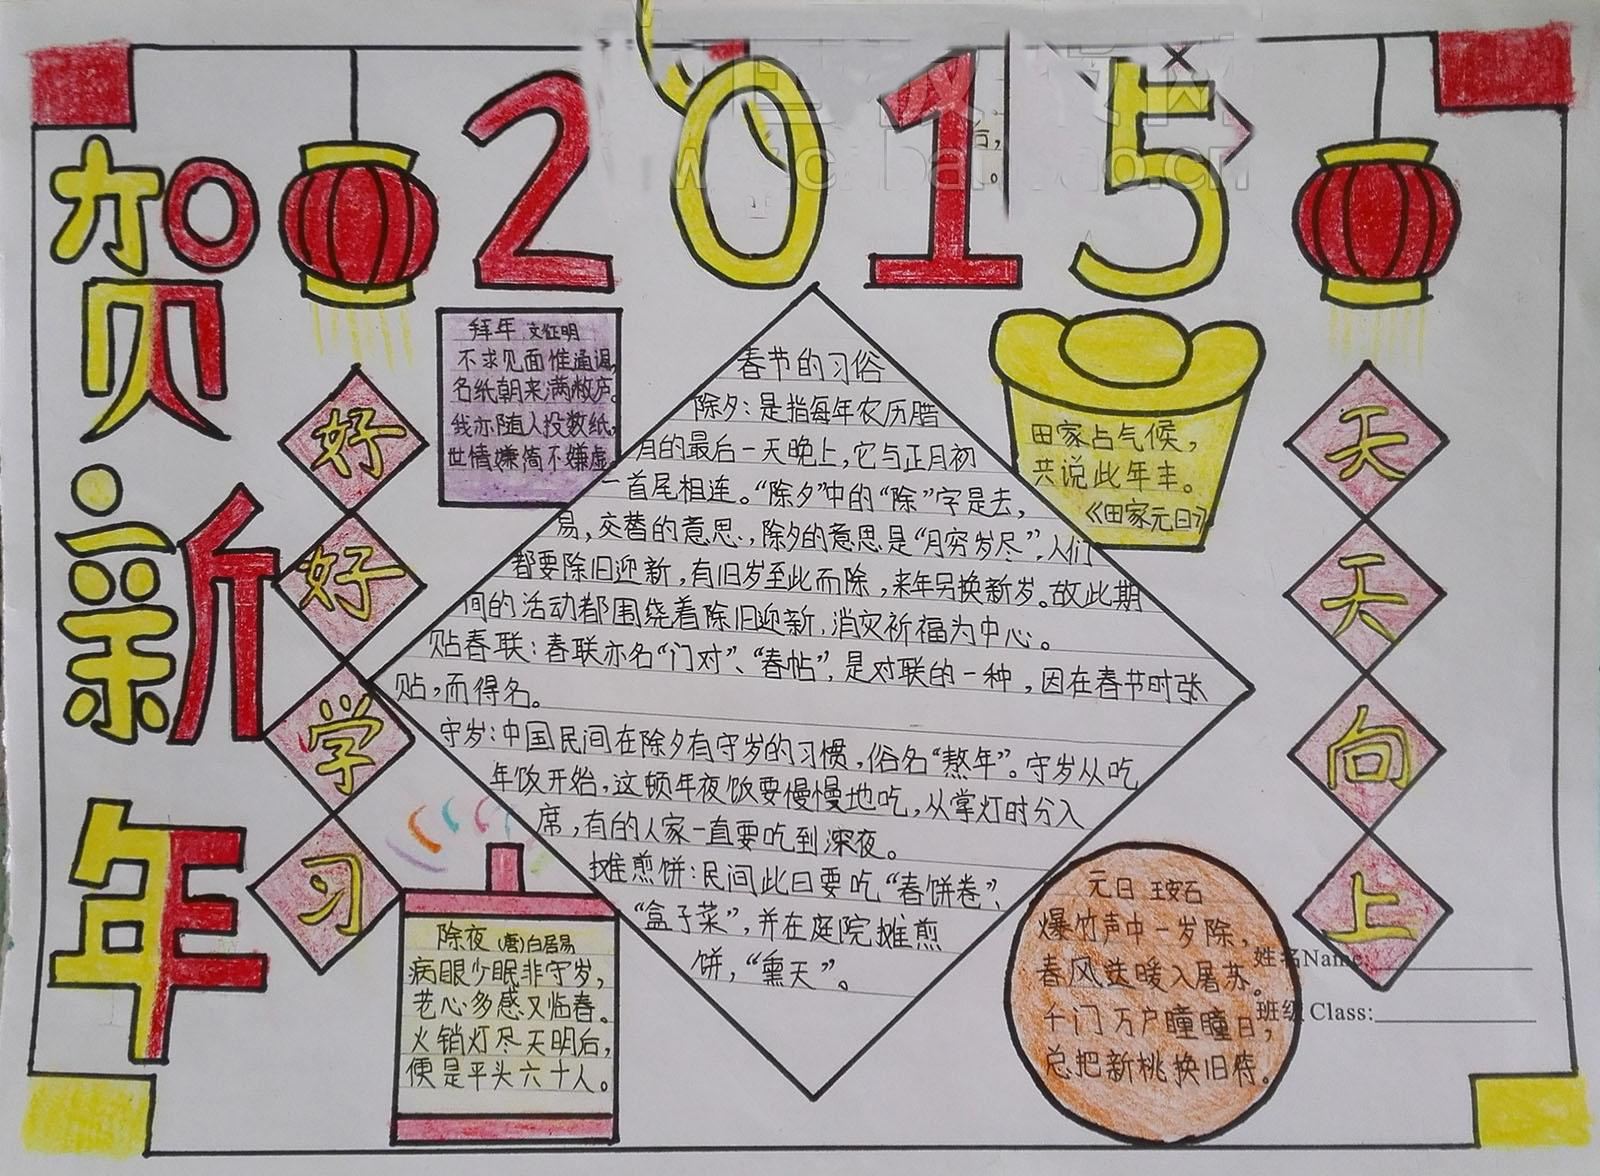 2015
贺新年
好好学习
天天向上
拜年 文征明
不求见面惟通谒,
名纸朝来满敝庐。
我亦随人投数纸,
世情嫌简不嫌虚。
春节的习俗
除夕：是指每年农历腊
月的最后一天晚上,它与正月初
一首尾相连。“除夕”中的“除”字是去,
易,交替的意思,除夕的意思是“月穷岁尽”,人们
都要除旧迎新,有旧岁至此而除,来年另换新岁。故此期
间的活动都围绕着除旧迎新,消灾祈福为中心。
贴春联：春联亦名“门对”、“春帖”,是对联的一种,因在春节时张
贴,而得名。
守岁：中国民间在除夕有守岁的习惯,俗名“熬年”。守岁从吃
年饭开始,这顿年夜饭要慢慢地吃,从掌灯时分入
席,有的人家一直要吃到深夜。
摊煎饼：民间此日要吃“春饼卷”、
“盒子菜”,并在庭院摊煎
饼,“熏天”。
田家占气候,
共说此年丰。
《田家元日》
除夜 (唐)白居易
病眼少眠非守岁,
老心多感又临春。
火销灯尽天明后,
便是平头六十人。
元日 王安石
爆竹声中一岁除,
春风送暖入屠苏。
千门万户瞳瞳日,
总把新桃换旧符。
姓名Name
班级 Class: